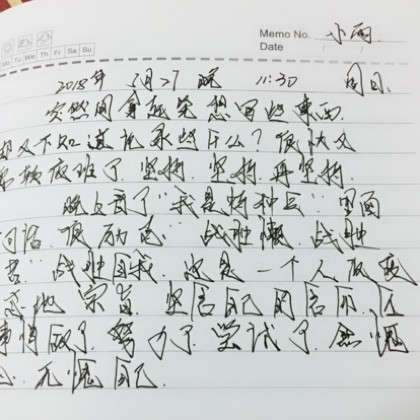 Memo No. 小雨
Mo Tu We Th Fr Sa Su
Date
2018年 1月27 晚 11:30 周日
突然间拿起笔想写些东西
却又不知道记录些什么？很快又
疲惫了 坚持 坚持 再坚持
晚上看了“我是特种兵”里面
句话 很励志“战胜 战胜
战胜自我 这是一个人
坚信自己的信仰
事情做了 努力了 尝试了 无愧
无愧自己